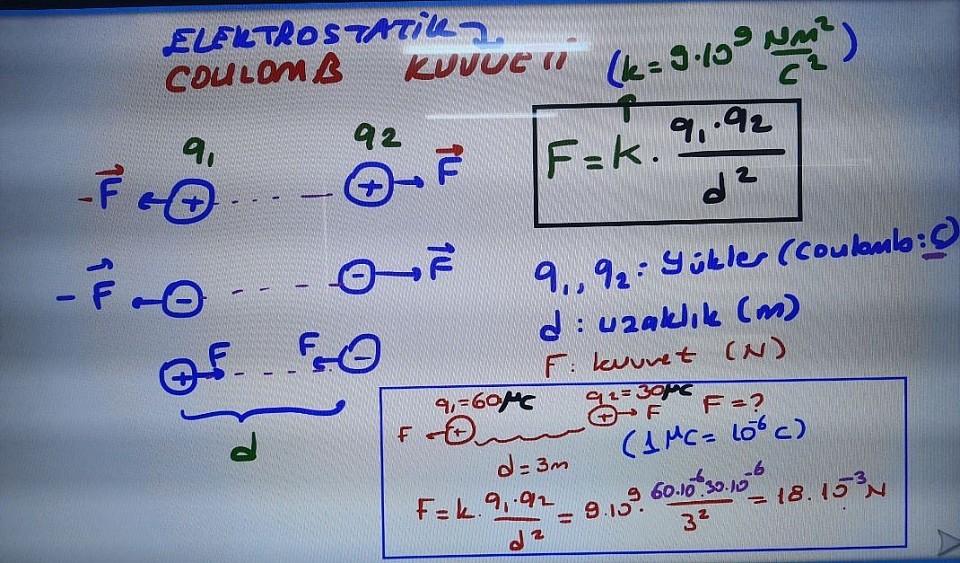 ELEKTROSTATİK 2
COULOMB KUVVETİ (k = 9·10⁹ Nm²/C²)
q₁ q₂
-F⃗ + + F⃗
F = k · q₁·q₂/d²
- F⃗ - - F⃗
q₁, q₂ : Yükler (coulomb: C)
d : uzaklık (m)
+ F F -
F : kuvvet (N)
d
q₁=60µC q₂=30µC F = ?
F + + F (1µC = 10⁻⁶ C)
d = 3m
F = k · q₁·q₂/d² = 9·10⁹ · 60·10⁻⁶·30·10⁻⁶/3² = 18·10⁻³ N